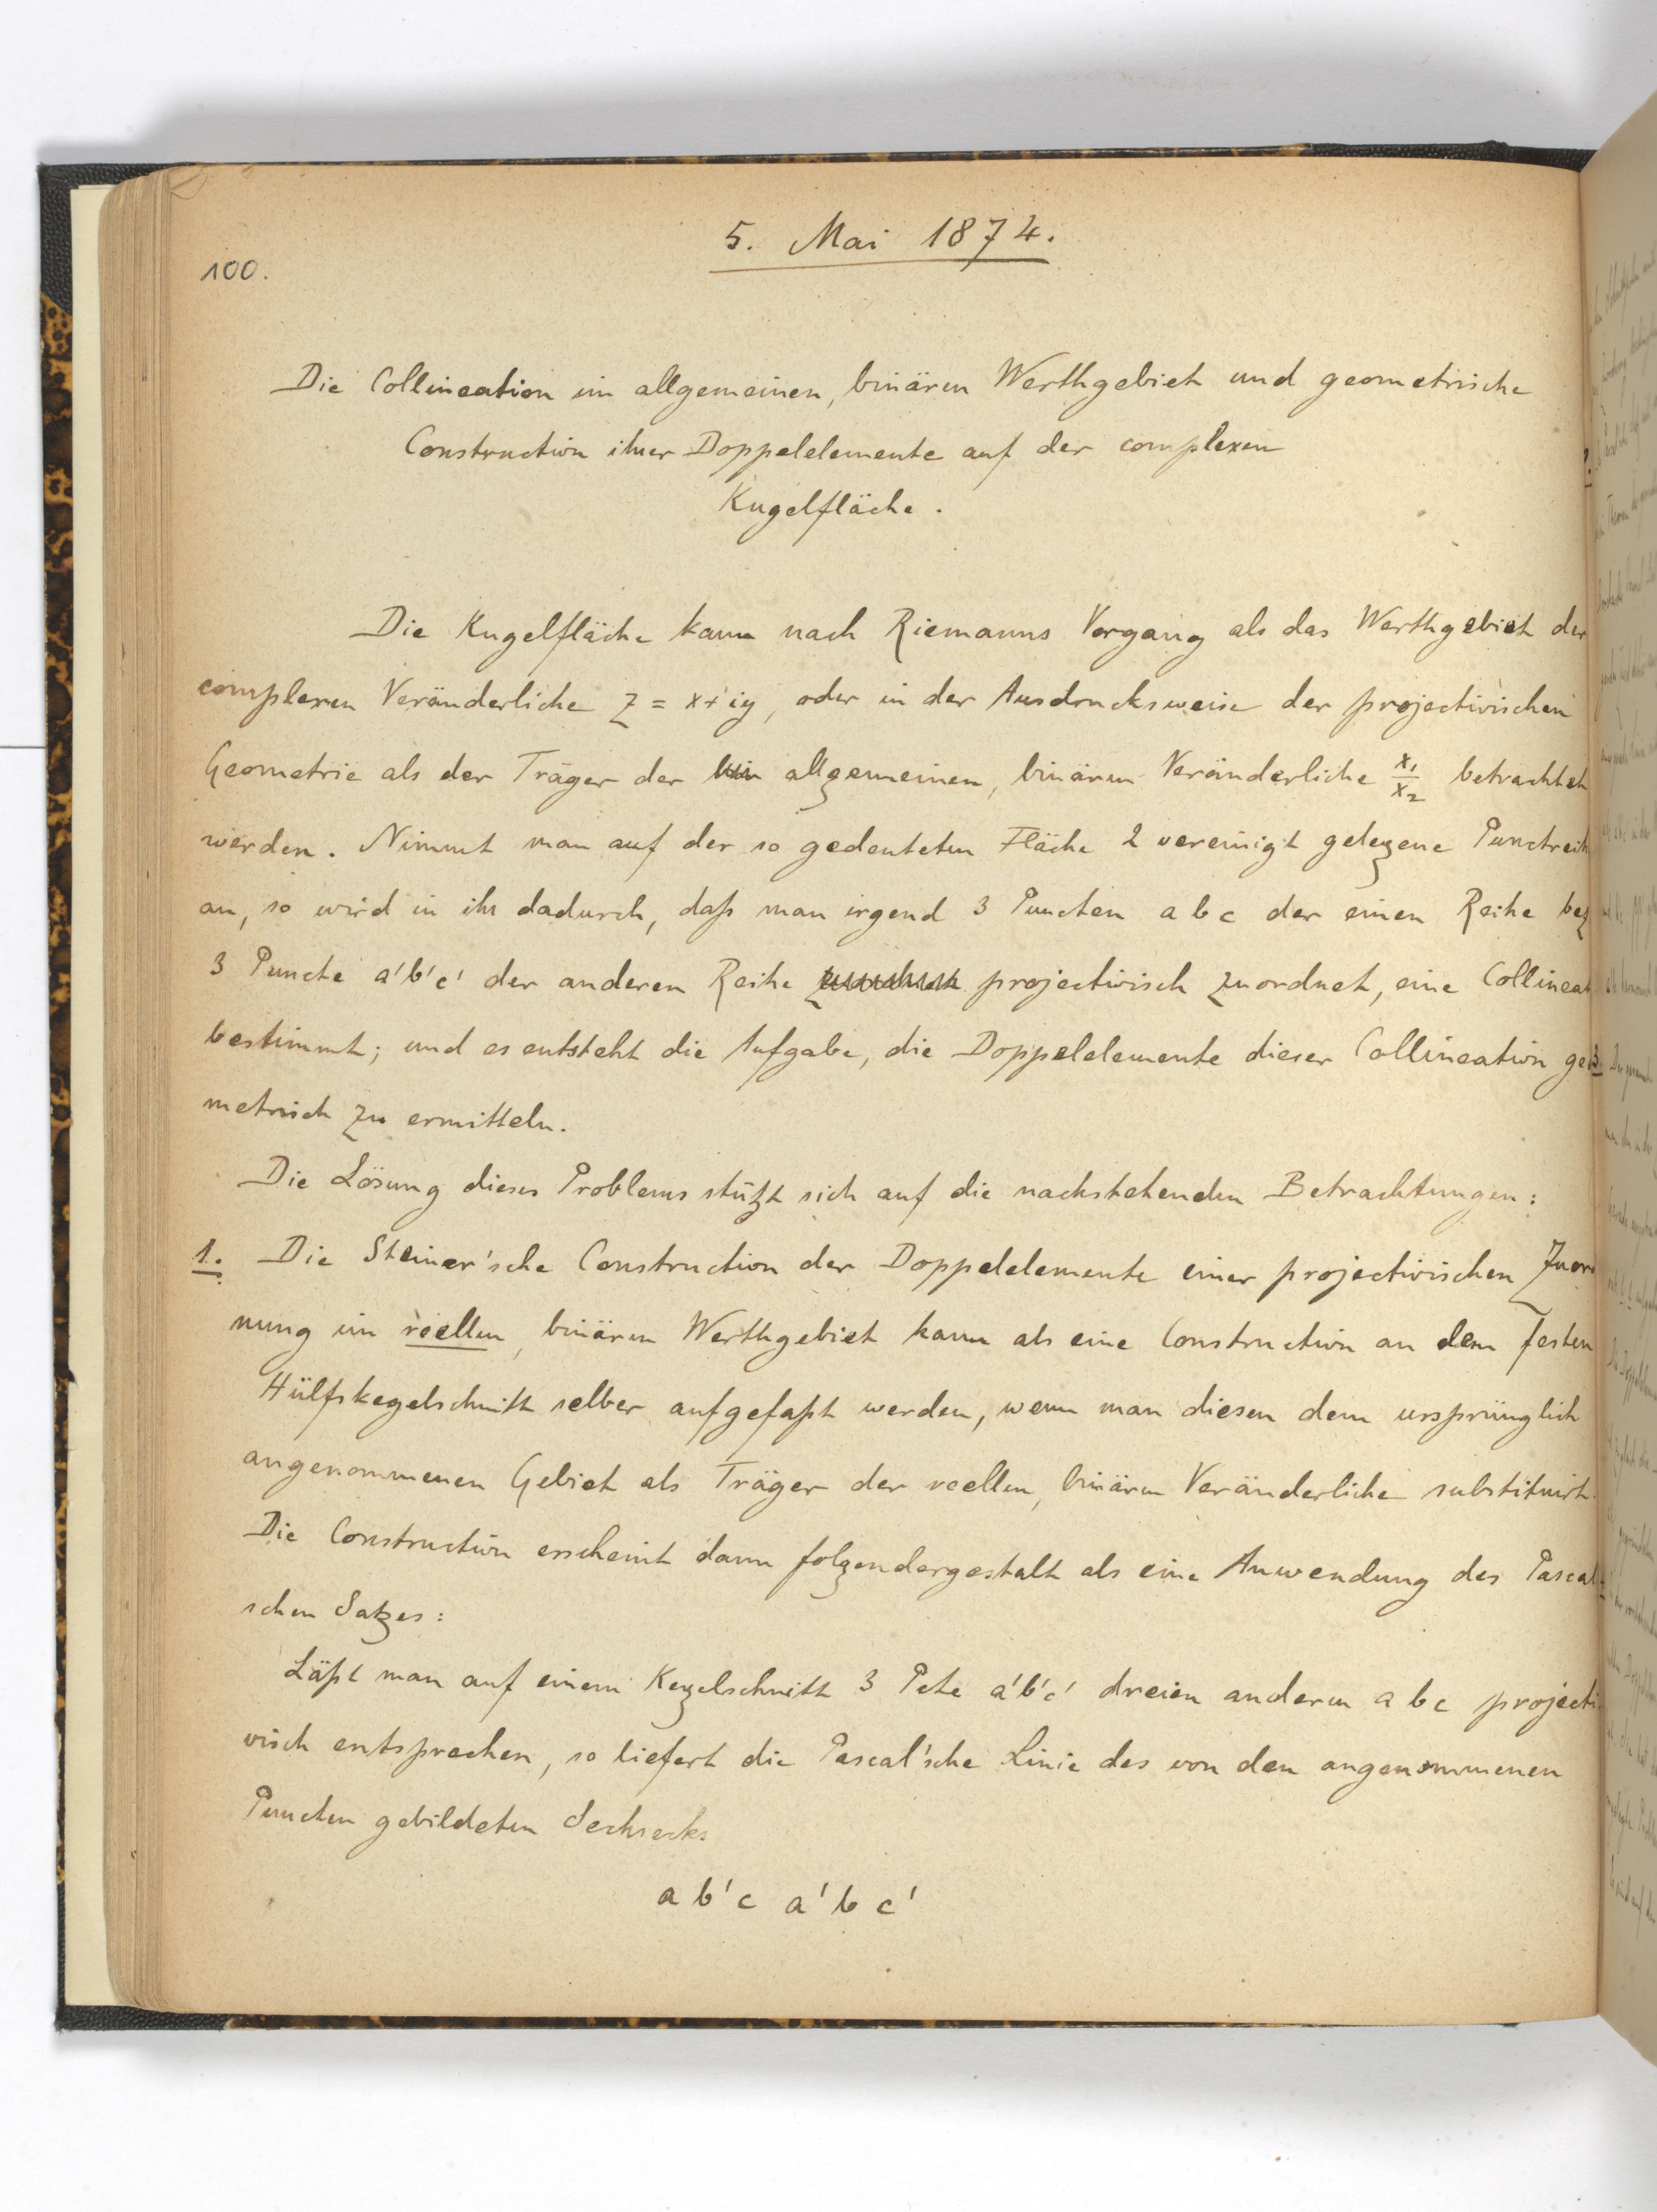 5. Mai 1874.
100.
Die Collineation im allgemeinen, binären Werthgebiet und geometrische
Construction ihrer Doppelelemente auf der complexen
Kugelfläche.
Die Kugelfläche kann nach Riemanns Vorgang als das Werthgebiet der
complexen Veränderliche z = x+iy, oder in der Ausdrucksweise der projectivischen
Geometrie als der Träger der allgemeinen, binären Veränderliche x₁/x₂ betrachtet
werden. Nimmt man auf der so gedeuteten Fläche 2 vereinigt gelegene Punctreih
an, so wird in ihr dadurch, daß man irgend 3 Puncten a b c der einen Reihe bez
3 Puncte a'b'c' der anderen Reihe projectivisch zuordnet, eine Collineat
bestimmt; und es entsteht die Aufgabe, die Doppelelemente dieser Collineation geo
metrisch zu ermitteln.
Die Lösung dieses Problems stützt sich auf die nachstehenden Betrachtungen:
1. Die Steiner'sche Construction der Doppelelemente einer projectivischen Zuord
nung im reellen, binären Werthgebiet kann als eine Construction an dem festen
Hülfskegelschnitt selber aufgefaßt werden, wenn man diesen dem ursprünglich
angenommenen Gebiet als Träger der reellen, binären Veränderliche substituirt.
Die Construction erscheint dann folgendergestalt als eine Anwendung des Pascal
schen Satzes:
Läßt man auf einem Kegelschnitt 3 Pcte a'b'c' dreien anderen a b c projecti
visch entsprechen, so liefert die Pascal'sche Linie des von den angenommenen
Puncten gebildeten Sechsecks
a b' c a' b c'